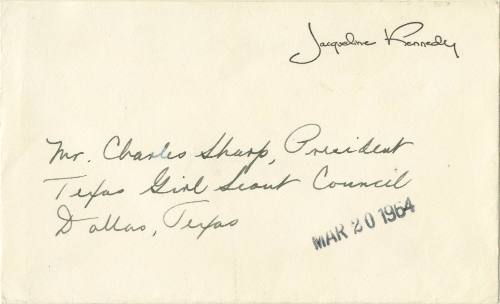 Jacqueline Kennedy
Mr. Charles Sharp, President
Texas Girl Scout Council
Dallas, Texas
MAR 20 1964